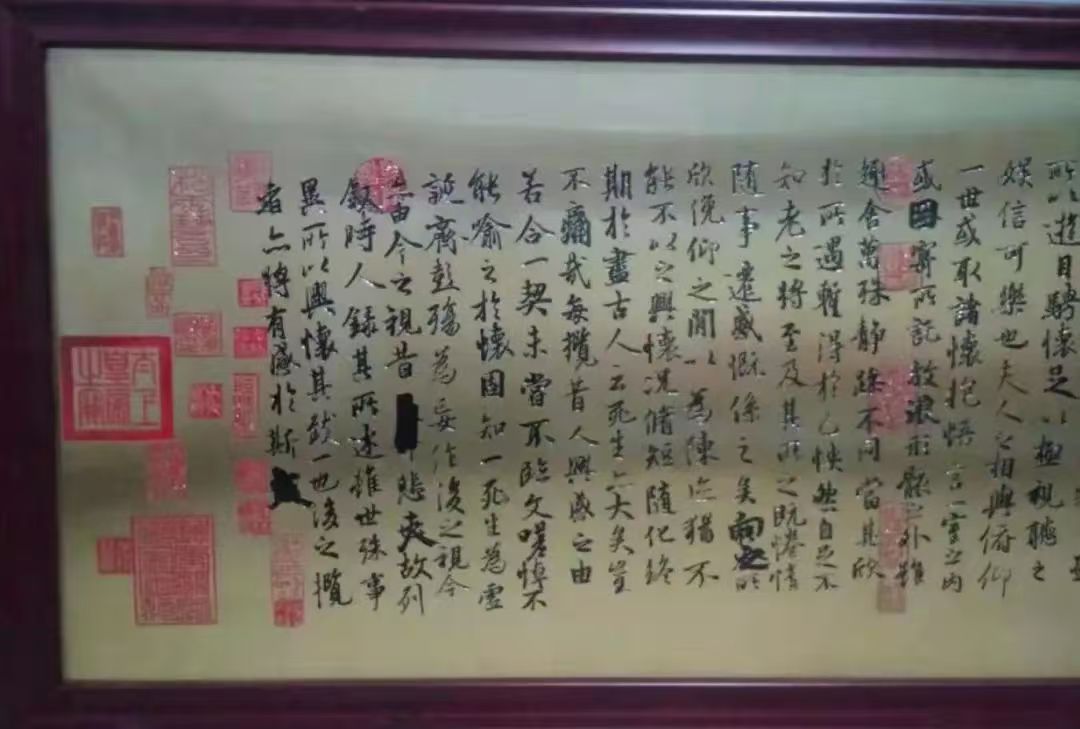 所以遊目騁懷足以極視聽之
娛信可樂也夫人之相與俯仰
一世或取諸懷抱悟言一室之內
或因寄所託放浪形骸之外雖
趣舍萬殊靜躁不同當其欣
於所遇暫得於己怏然自足不
知老之將至及其所之既惓情
隨事遷感慨係之矣向之所
欣俛仰之間以為陳迹猶不
能不以之興懷況脩短隨化終
期於盡古人云死生亦大矣豈
不痛哉每攬昔人興感之由
若合一契未嘗不臨文嗟悼不
能喻之於懷固知一死生為虛
誕齊彭殤為妄作後之視今
亦由今之視昔悲夫故列
敘時人錄其所述雖世殊事
異所以興懷其致一也後之攬
者亦將有感於斯文
太上皇帝之寶